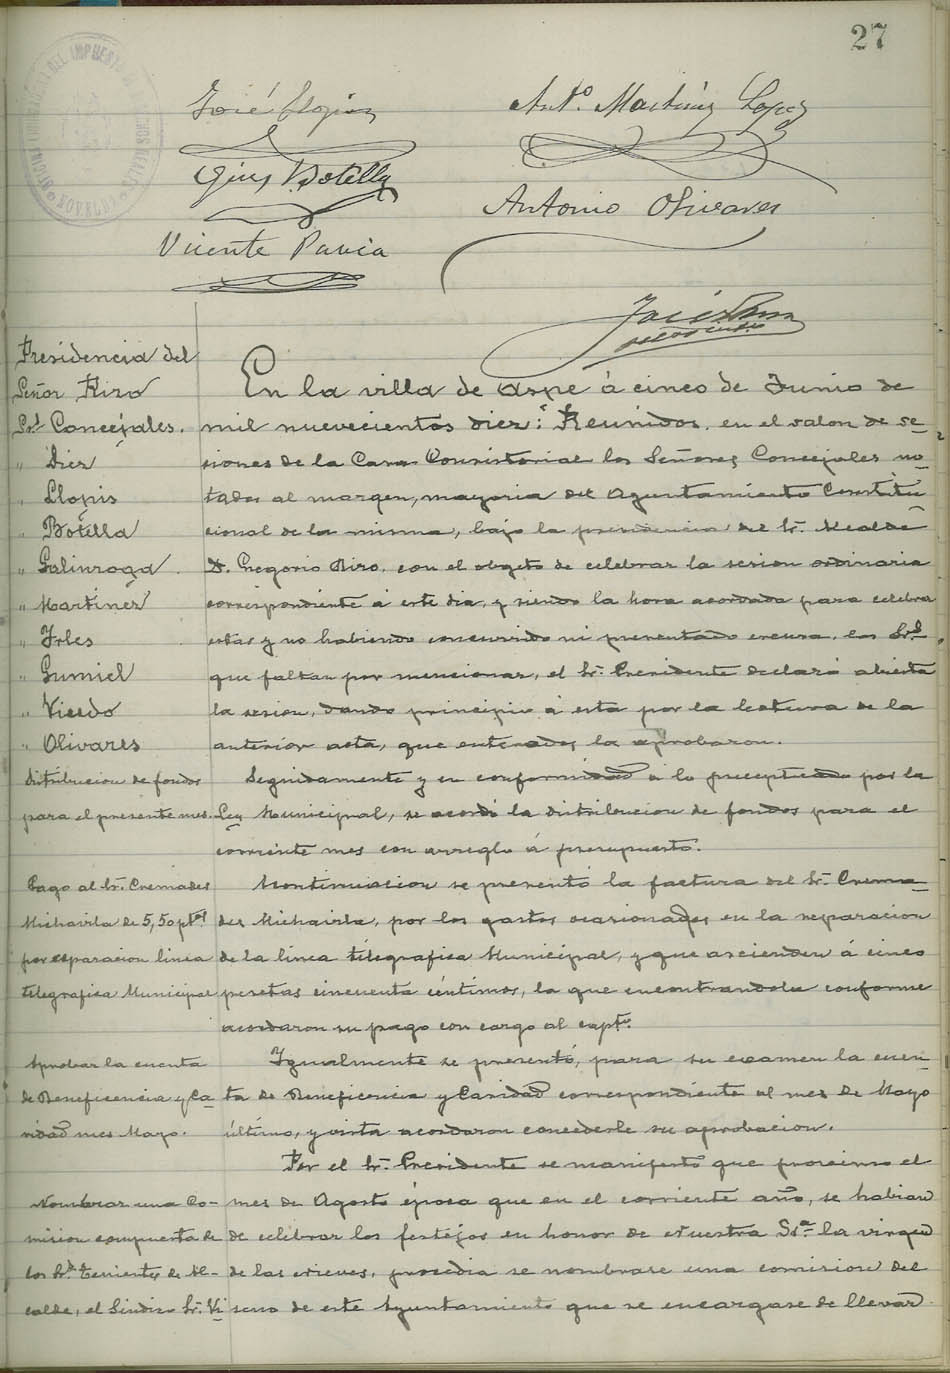 27
José Llopis
Antº Martínez Lopez
Botella
Antonio Olivares
Vicente Pavia
José
Presidencia del
Señor Rizo
Sres Concejales.
" Diez
" Llopis
" Botella
" Galinsoga
" Martinez
" Irles
" Gumiel
" Vicedo
" Olivares
En la villa de Aspe á cinco de Junio de
mil nuevecientos diez: Reunidos, en el salon de se-
siones de la Casa Consistorial los Señores Concejales no-
tados al margen, mayoria del Ayuntamiento Constitu-
cional de la misma, bajo la presidencia del Sr. Alcalde
D. Gregorio Rizo, con el objeto de celebrar la sesion ordinaria
correspondiente á este dia, y siendo la hora acordada para celebra
estas y no habiendo concurrido ni presentado escusa, los Sres
que faltan por mencionar, el Sr. Presidente declaró abierta
la sesion, dando principio á esta por la lectura de la
anterior acta, que enterados la aprobaron.
Distribucion de fondos
para el presente mes.
Seguidamente y en conformidad á lo preceptuado por la
Ley Municipal, se acordó la distribucion de fondos para el
corriente mes con arreglo á presupuesto.
Pago al Sr. Cremades
Michavila de 5,50 ptas
por reparacion linea
telegrafica Municipal
Acontinuacion se presentó la factura del Sr. Crema-
des Michavila, por los gastos ocasionados en la reparacion
de la linea telegrafica Municipal, y que ascienden á cinco
pesetas cincuenta céntimos, la que encontrandola conforme
acordaron su pago con cargo al capto.
Aprobar la cuenta
de Beneficencia y Ca-
ridad mes Mayo.
Igualmente se presentó, para su examen la cuen-
ta de Beneficencia y Caridad correspondiente al mes de Mayo
último, y vista acordaron concederle su aprobacion.
Por el Sr. Presidente se manifestó que proximo el
Nombrar una Co-
mision compuesta de
los Srs. Tenientes de Al-
calde, el Sindico Sr. Vi
mes de Agosto época que en el corriente año, se habian
de celebrar los festejos en honor de Nuestra Sra. la virgen
de las Nieves, procedia se nombrase una comision del
seno de este Ayuntamiento que se encargase de llevar